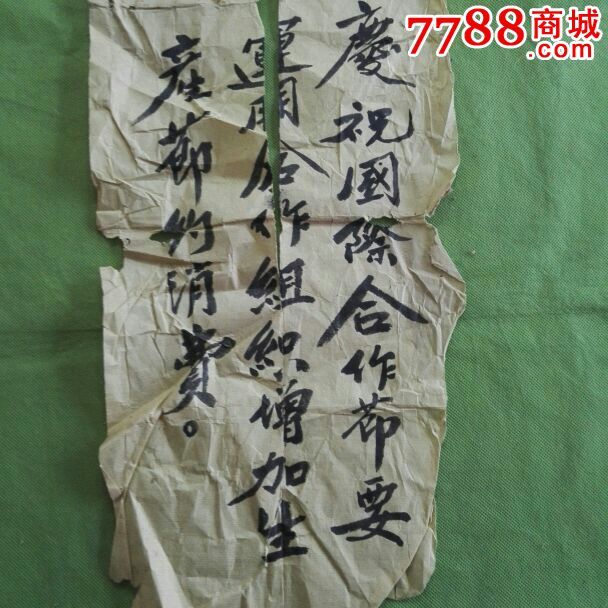 慶祝國際合作節要
運用合作組織增加生
產節約消費。
7788商城
.com